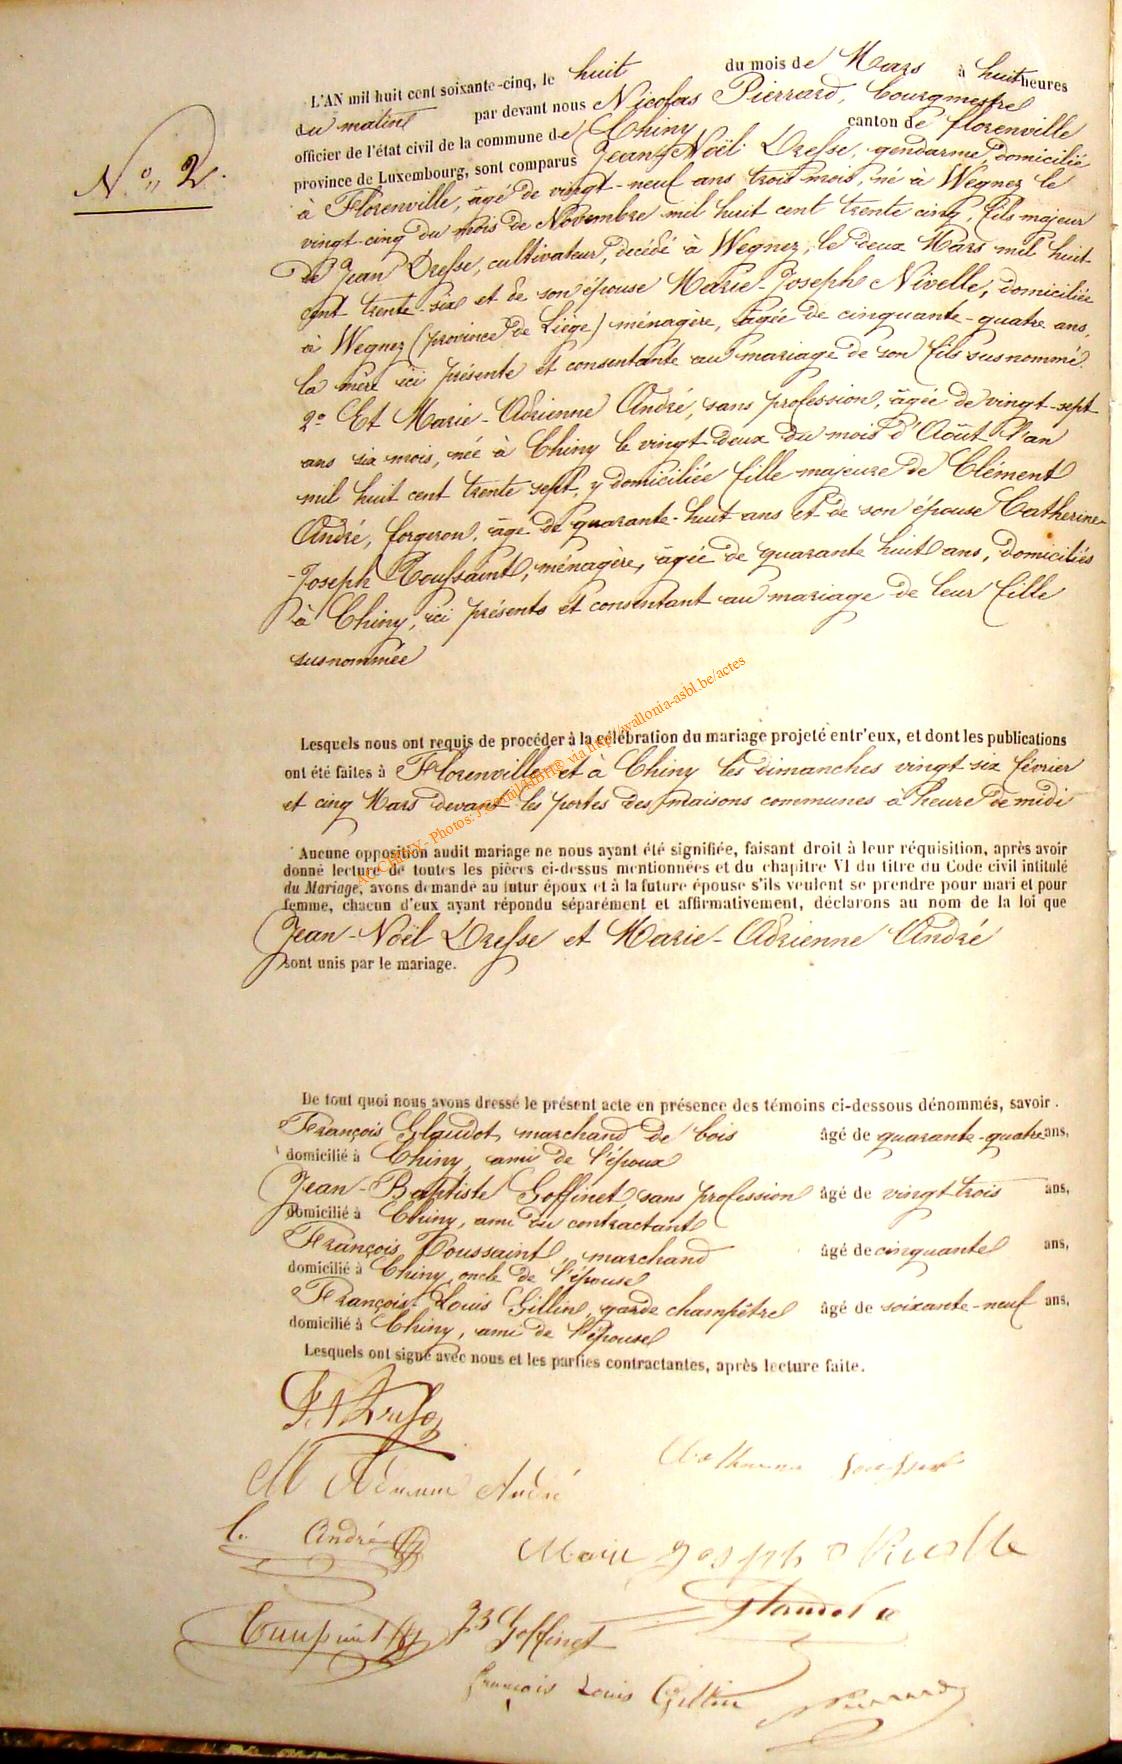 N.o 2.
L'AN mil huit cent soixante-cinq, le huit du mois de Mars à huit heures
du matin par devant nous Nicolas Pierrard, bourgmestre
officier de l'état civil de la commune de Chiny canton de florenville
province de Luxembourg, sont comparus Jean-Noël Dresse, gendarme, domicilié
à Florenville, âgé de vingt-neuf ans trois mois, né à Wegnez le
vingt-cinq du mois de Novembre mil huit cent trente cinq, fils majeur
de Jean Dresse, cultivateur, décédé à Wegnez, le deux Mars mil huit
cent trente-six et de son épouse Marie-Joseph Nivelle, domiciliée
à Wegnez (province de Liège) ménagère, âgée de cinquante-quatre ans,
la mère ici présente et consentante au mariage de son fils susnommé.
2o Et Marie-Adrienne André, sans profession, âgée de vingt-sept
ans six mois, née à Chiny le vingt deux du mois d'Août l'an
mil huit cent trente sept, y domiciliée fille majeure de Clément
André, forgeron, âgé de quarante-huit ans et de son épouse Catherine-
-Joseph Toussaint, ménagère, âgée de quarante huit ans, domiciliés
à Chiny, ici présents et consentant au mariage de leur fille
susnommée
Lesquels nous ont requis de procéder à la célébration du mariage projeté entr'eux, et dont les publications
ont été faites à Florenville et à Chiny les dimanches vingt six février
et cinq Mars devant les portes des maisons communes à heure de midi
Aucune opposition audit mariage ne nous ayant été signifiée, faisant droit à leur réquisition, après avoir
donné lecture de toutes les pièces ci-dessus mentionnées et du chapitre VI du titre du Code civil intitulé
du Mariage, avons demandé au futur époux et à la future épouse s'ils veulent se prendre pour mari et pour
femme, chacun d'eux ayant répondu séparément et affirmativement, déclarons au nom de la loi que
Jean-Noël Dresse et Marie-Adrienne André
sont unis par le mariage.
De tout quoi nous avons dressé le présent acte en présence des témoins ci-dessous dénommés, savoir.
François Glaudot, marchand de bois âgé de quarante-quatre ans,
domicilié à Chiny, ami de l'époux
Jean-Baptiste Goffinet, sans profession âgé de vingt trois ans,
domicilié à Chiny, ami du contractant
François Toussaint, marchand âgé de cinquante ans,
domicilié à Chiny, oncle de l'épouse
François-Louis Gillin, garde champêtre âgé de soixante-neuf ans,
domicilié à Chiny, ami de l'épouse
Lesquels ont signé avec nous et les parties contractantes, après lecture faite.
André
C. André
Marie Joseph Nivelle
Glaudot
JB Goffinet
françois Louis Gillin
Pierrard